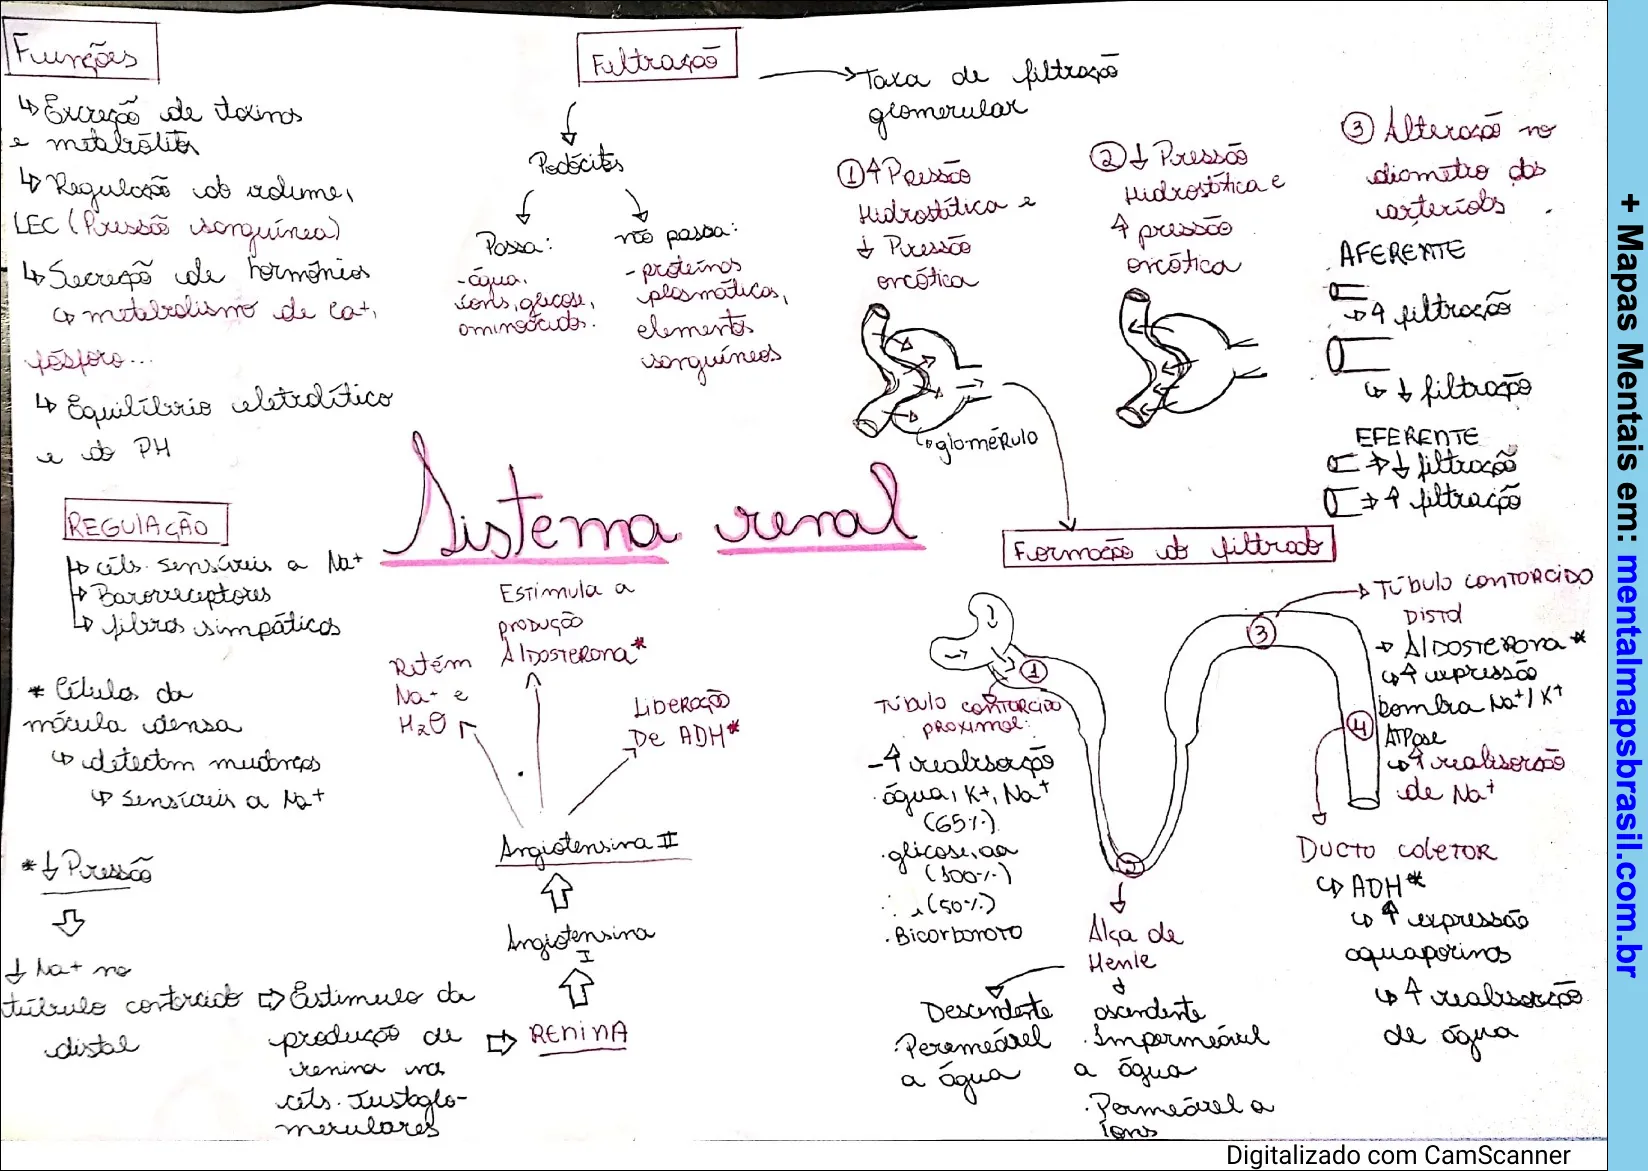 Funções
↳ Excreção de toxinas
e metabólitos
↳ Regulação do volume,
LEC (Pressão sanguínea)
↳ Secreção de hormônios
↳ metabolismo de Ca+,
fósforo...
↳ Equilíbrio eletrolítico
e do PH
Filtração
Podócitos
Passa:
-água,
íons, glicose,
aminoácidos.
não passa:
- proteínas
plasmáticas,
elementos
sanguíneos
Taxa de filtração
glomerular
① ↑ Pressão
Hidrostática e
↓ Pressão
oncótica
glomérulo
② ↓ Pressão
Hidrostática e
↑ pressão
oncótica
③ Alteração no
diametro das
arteríolas
AFERENTE
↳ ↑ filtração
↳ ↓ filtração
EFERENTE
⇒ ↓ filtração
⇒ ↑ filtração
Sistema renal
REGULAÇÃO
↳ céls. sensíveis a Na+
↳ Barorreceptores
↳ fibras simpáticas
* Células da
mácula densa
↳ detectam mudanças
↳ sensíveis a Na+
* ↓ Pressão
↓ Na+ no
túbulo contorcido
distal
⇒ Estimulo da
produção de
renina na
céls. Justaglo-
merulares
⇒ RENINA
Angiotensina
I
Angiotensina II
Retém
Na+ e
H2O
Estimula a
produção
Aldosterona*
Liberação
De ADH*
Formação do filtrado
①
Túbulo contorcido
proximal:
- ↑ reabsorção
água, K+, Na+
(65%)
. glicose, aa
(100%)
(50%)
. Bicarbonato
②
Alça de
Henle
Descendente
. Peremeável
a água
ascendente
. Impermeável
a água
. Permeável a
íons
③
Túbulo contorcido
Distal
→ Aldosterona*
↳ ↑ expressão
bomba Na+/K+
ATPase
↳ ↑ reabsorção
de Na+
④
Ducto coletor
↳ ADH*
↳ ↑ expressão
aquaporinas
↳ ↑ reabsorção
de água
+ Mapas Mentais em: mentalmapsbrasil.com.br
Digitalizado com CamScanner